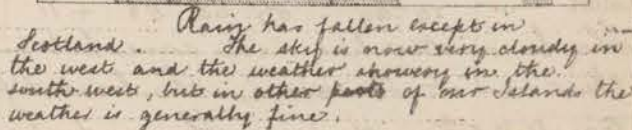 Rain has fallen except in
Scotland. The sky is now very cloudy in
the west and the weather showery in the
south west, but in other parts of our Islands the
weather is generally fine.